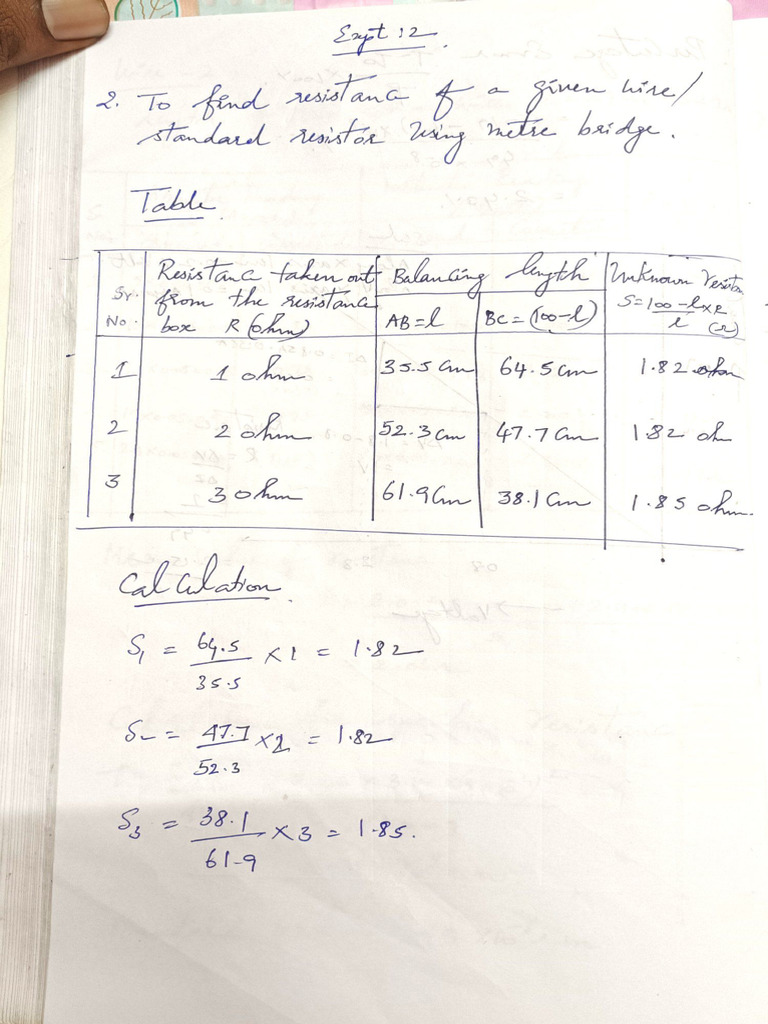 Expt : 2
2. To find resistance of a given wire/
standard resistor using metre bridge.
Table
Sr. No. Resistance taken out from the resistance box R (ohm) Balancing length Unknown
AB = l BC = (100-l) S = 100 - l x R / l (Ω)
1 1 ohm 35.5 cm 64.5 cm 1.82 ohm
2 2 ohm 52.3 cm 47.7 cm 1.82 oh
3 3 ohm 61.9 cm 38.1 cm 1.85 ohm.
Calculation
S1 = 64.5 / 35.5 x 1 = 1.82
S2 = 47.7 / 52.3 x 2 = 1.82
S3 = 38.1 / 61.9 x 3 = 1.85.